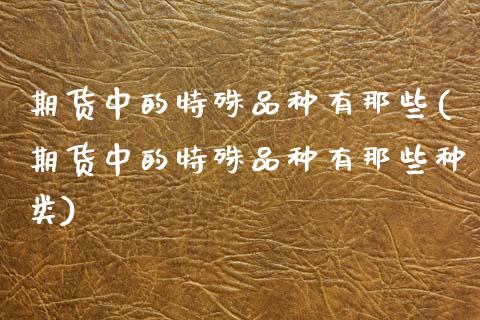 期货中的特殊品种有那些(
期货中的特殊品种有那些种
类)